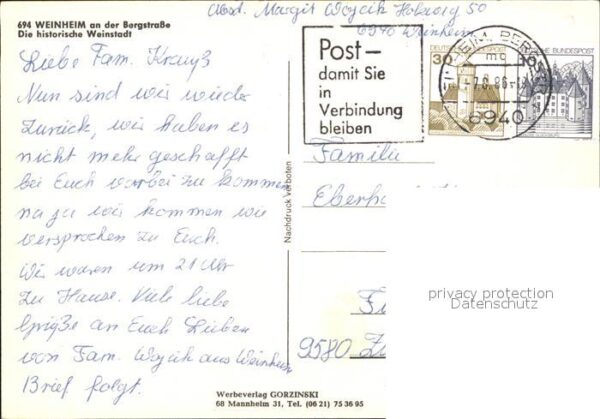 694 WEINHEIM an der Bergstraße
Die historische Weinstadt
Absd. Margit Wojcik 50
6940 Weinheim
Liebe Fam. Krauß
Nun sind wir wieder
Zurück, wir haben es
nicht mehr geschafft
bei Euch vorbei zu kommen
na ja wir kommen wie
versprochen zu Euch.
Wir waren um 21 Uhr
Zu Hause. Viele liebe
Grüße an Euch Lieben
von Fam. Wojcik aus Weinheim
Brief folgt.
Post–
damit Sie
in
Verbindung
bleiben
30
6940
Nachdruck verboten
Familie
9580
privacy protection
Datenschutz
Werbeverlag GORZINSKI
68 Mannheim 31, Tel. (06 21) 75 36 95